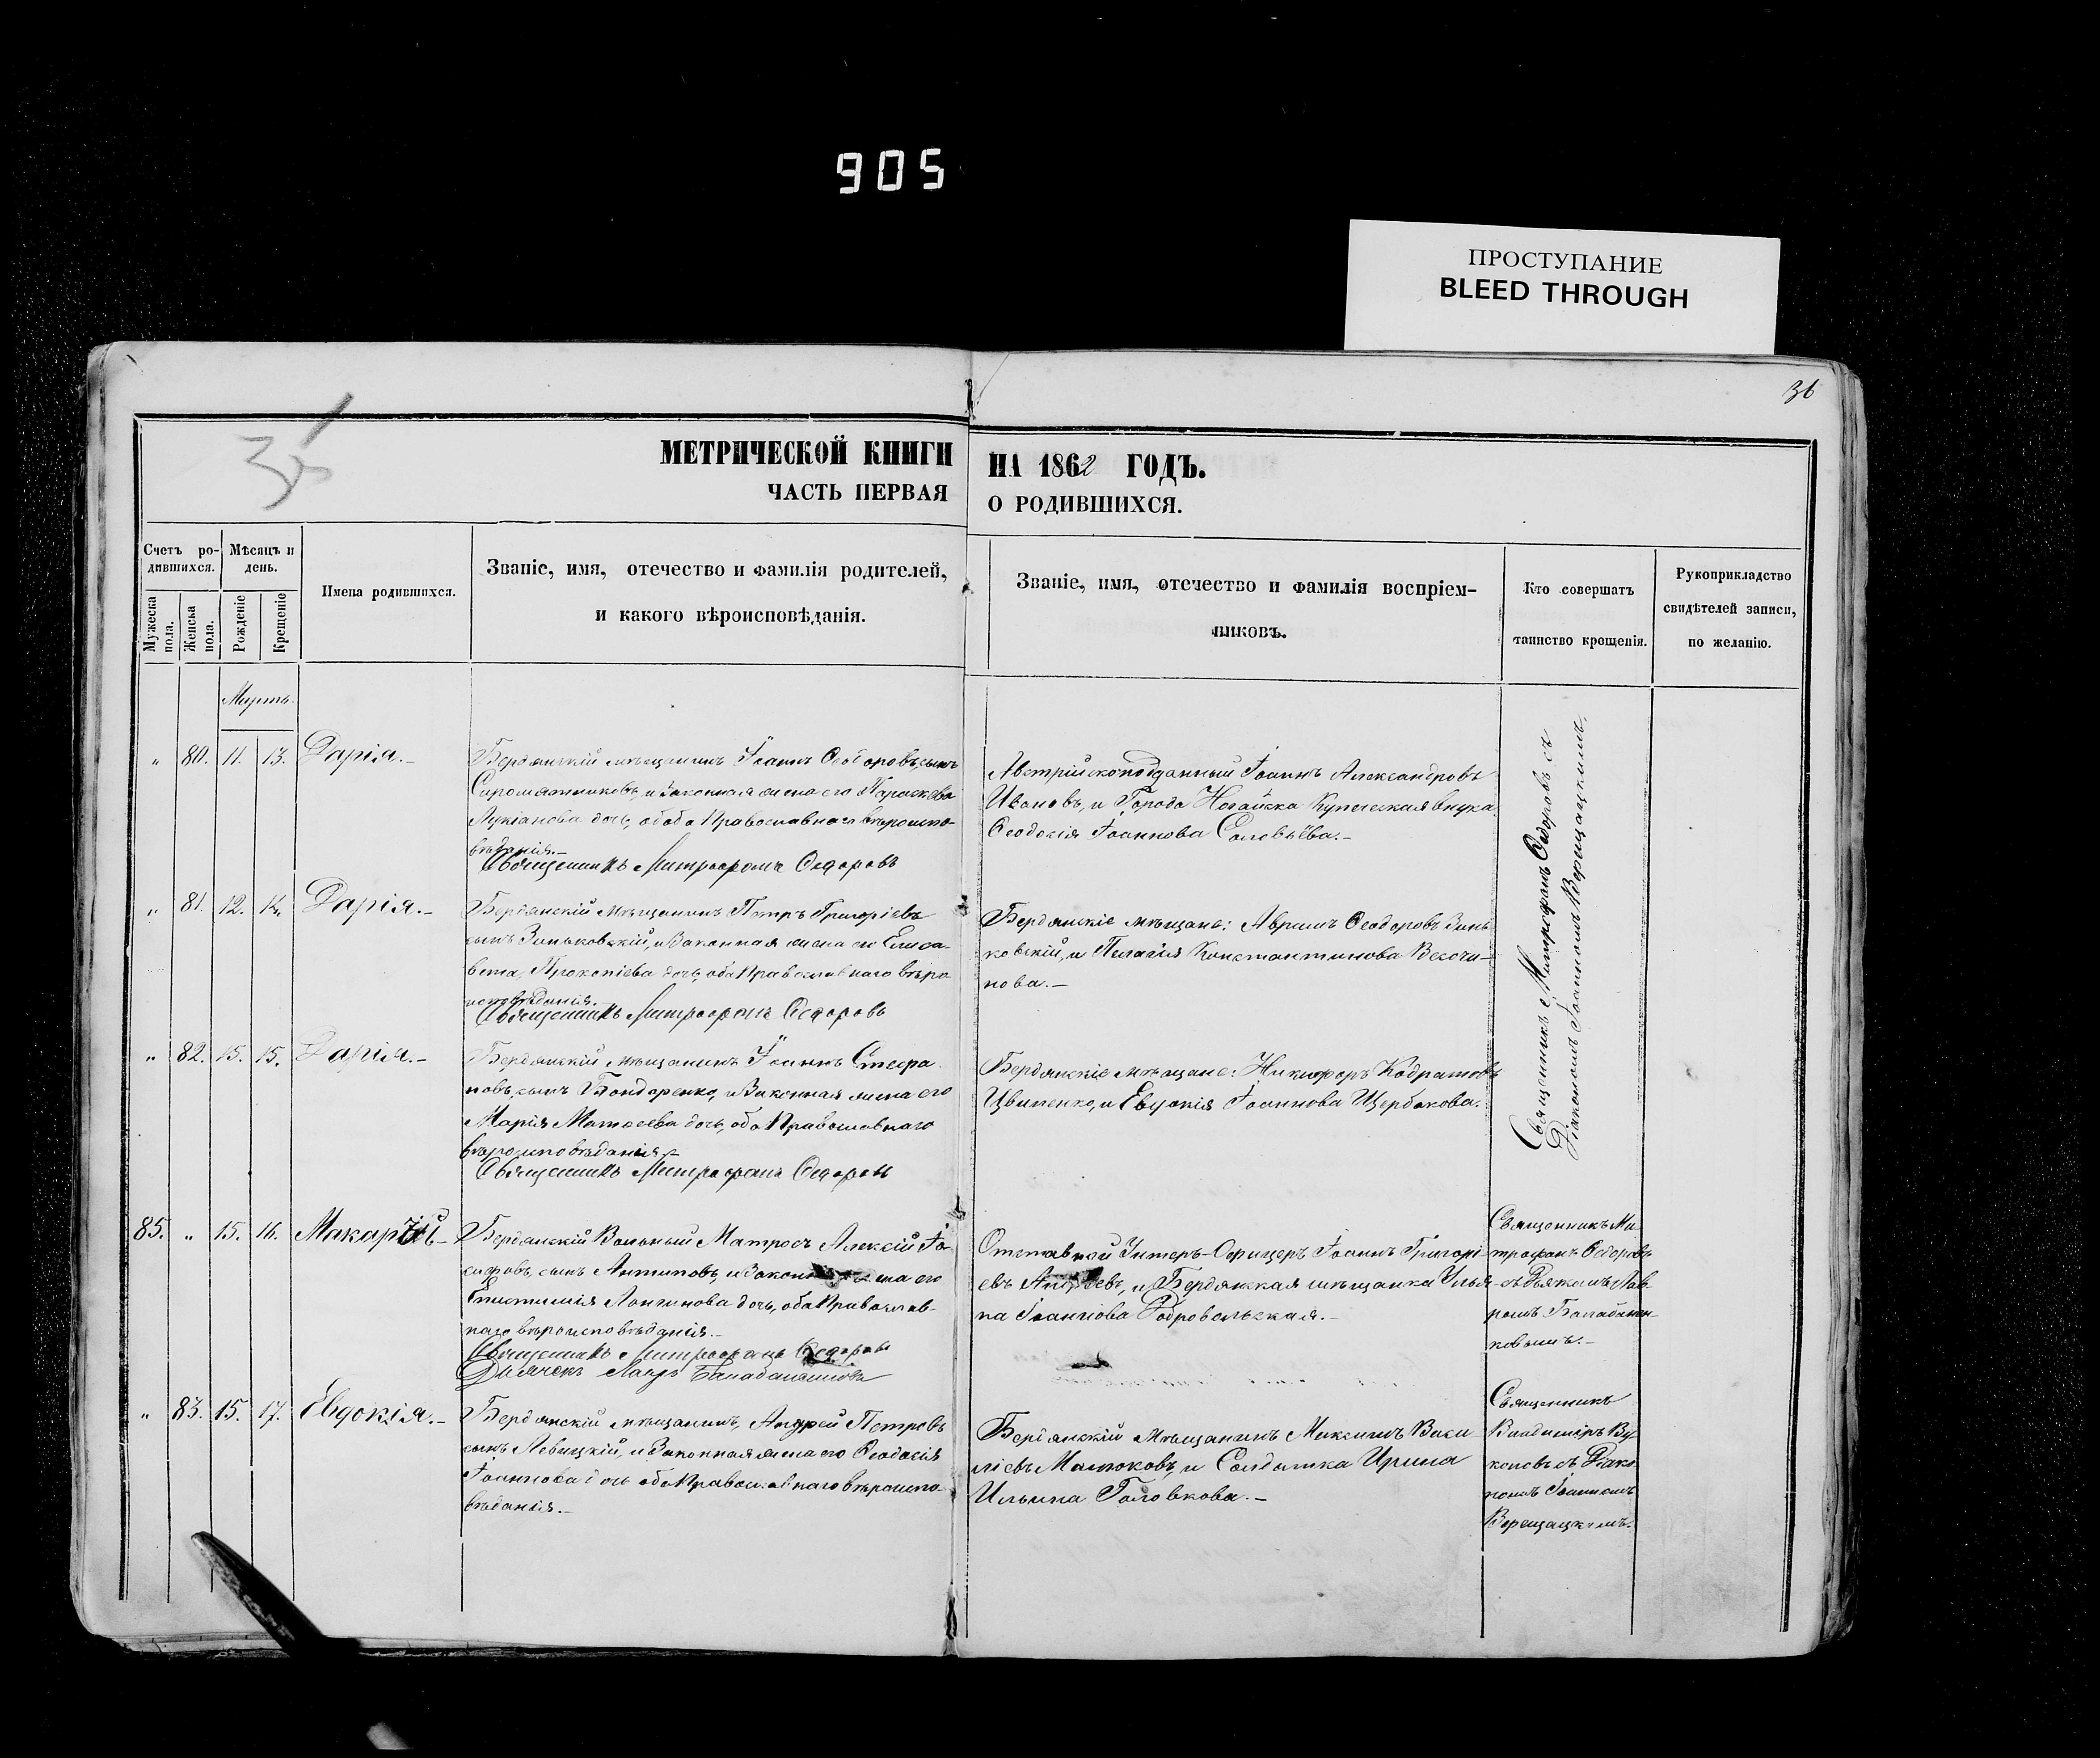 905
ПРОСТУПАНИЕ
BLEED THROUGH
36
МЕТРИЧЕСКОЙ КНИГИ
ЧАСТЬ ПЕРВАЯ
НА 1862 ГОДЪ.
О РОДИВШИХСЯ.
Счетъ ро-
дившихся.
Мужеска пола.
Женска пола.
Мѣсяцъ и
день.
Рожденіе
Крещеніе
Имена родившихся.
Званіе, имя, отечество и фамилія родителей,
и какого вѣроисповѣданія.
Званіе, имя, отечество и фамилія воспріем-
никовъ.
Кто совершатъ
таинство крещенія.
Рукоприкладство
свидѣтелей записи,
по желанію.
Мартъ
„ 80. 11. 13. Дарія.–
Бердянскій мѣщанинъ Іоаннъ Ѳеодоровъ, сынъ
Сиромятниковъ, и Законная жена его Параскева
Лукіанова дочь, оба Православнаго вѣроиспо-
вѣданія.–
Священникъ Митрофанъ Ѳедоровъ
Австрійскоподданный Іоаннъ Александровъ
Ивановъ, и Города Ногайска Купеческая внука
Ѳеодосія Іоаннова Соловьёва.–
Священникъ Митрофанъ Ѳедоровъ съ
Діакономъ Іоанномъ Верещацкимъ.
„ 81. 12. 14. Дарія.–
Бердянскій мѣщанинъ Петръ Григоріевъ
сынъ Зиньковскій, и Законная жена его Елиса-
вета, Прокопіева дочь, оба Православнаго вѣро
исповѣданія.
Священникъ Митрофанъ Ѳедоровъ
Бердянскіе мѣщане: Аврамъ Ѳеодоровъ Зинь
ковскій, и Пелагія Константинова
нова.–
„ 82. 15. 15. Дарія.–
Бердянскій мѣщанинъ Іоаннъ Стефа
новъ, сынъ Бондаренко, и Законная жена его
Марія Матѳеева дочь, оба Православнаго
вѣроисповѣданія.–
Священникъ Митрофанъ Ѳедоровъ
Бердянскіе мѣщане: Никифоръ Кодратовъ
Цвиненко, и Евдокія Іоаннова Щербакова.
85. „ 15. 16. Макарій–
Бердянскій Вольный Матросъ Алексій Іо-
сифовъ, сынъ Антиповъ, и Законная жена его
Лонгинова дочь, оба Православ-
наго вѣроисповѣданія.–
Священникъ Митрофанъ Ѳедоровъ
Дьячекъ Лавръ
Отставной Унтеръ-Офицеръ Іоаннъ Григорі
евъ Андреевъ, и Бердянская мѣщанка Улья-
на Іоаннова Добровольская.–
Священникъ Ми
трофанъ Ѳедоровъ
съ Дьякомъ Лав
ромъ
ковымъ.–
„ 83. 15. 17. Евдокія.–
Бердянскій мѣщанинъ, Андрей Петровъ
сынъ Левицкій, и Законная жена его Ѳеодосія
Іоаннова дочь оба Православнаго вѣроиспо-
вѣданія.–
Бердянскій Мѣщанинъ Максимъ Васи
ліевъ Малюковъ, и Солдатка Ирина
Ильина Головкова.–
Священникъ
Владиміръ Ву
коловъ съ Діако
номъ Іоанномъ
Верещацкимъ.